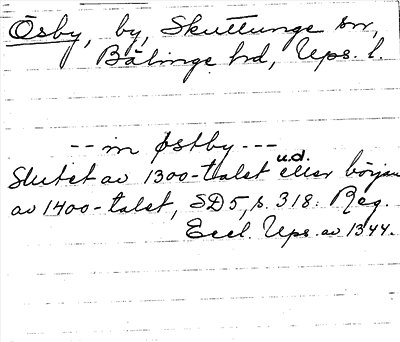 Ösby, by, Skuttunge sn,
Bälinge hd, Ups. l.
-- in østby ---
Slutet av 1300-talet u.d. eller början
av 1400-talet, SD 5, s. 318. Reg.
Eccl. Ups. av 1344.